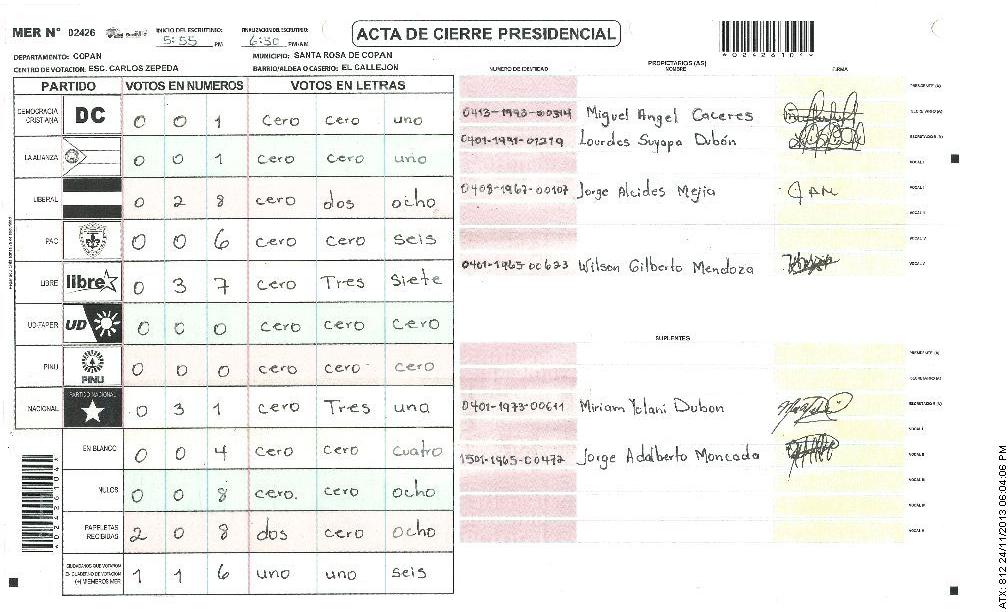 MER N° 02426 INICIO DEL ESCRUTINIO: 5:55 PM FINALIZACION DEL ESCRUTINIO: 6:30 PM/AM ACTA DE CIERRE PRESIDENCIAL
DEPARTAMENTO: COPAN MUNICIPIO: SANTA ROSA DE COPAN
CENTRO DE VOTACION: ESC. CARLOS ZEPEDA BARRIO/ALDEA O CASERIO: EL CALLEJON
PARTIDO VOTOS EN NUMEROS VOTOS EN LETRAS
DEMOCRACIA CRISTIANA DC 0 0 1 cero cero uno
LA ALIANZA 0 0 1 cero cero uno
LIBERAL 0 2 8 cero dos ocho
PAC 0 0 6 cero cero seis
LIBRE libre 0 3 7 cero Tres siete
UD-FAPER UD 0 0 0 cero cero cero
PINU PINU 0 0 0 cero cero cero
NACIONAL PARTIDO NACIONAL 0 3 1 cero Tres uno
EN BLANCO 0 0 4 cero cero cuatro
NULOS 0 0 8 cero. cero ocho
PAPELETAS RECIBIDAS 2 0 8 dos cero ocho
CIUDADANOS QUE VOTARON EN CUADERNO DE VOTACION (+) MIEMBROS MER 1 1 6 uno uno seis
PROPIETARIOS (AS)
NUMERO DE IDENTIDAD NOMBRE FIRMA
PRESIDENTE (A)
0413-1993-00314 Miguel Angel Caceres
0401-1991-01219 Lourdes Suyapa Dubón SECRETARIO (A)
VOCAL I
0408-1967-00107 Jorge Alcides Mejia JAM
0401-1965-00623 Wilson Gilberto Mendoza
SUPLENTES
PRESIDENTE (A)
SECRETARIO (A)
0401-1973-00611 Miriam Yolani Dubon
VOCAL I
1501-1965-00472 Jorge Adalberto Moncada VOCAL II
VOCAL III
*02426104*
ATX: 812 24/11/2013 06:04:06 PM